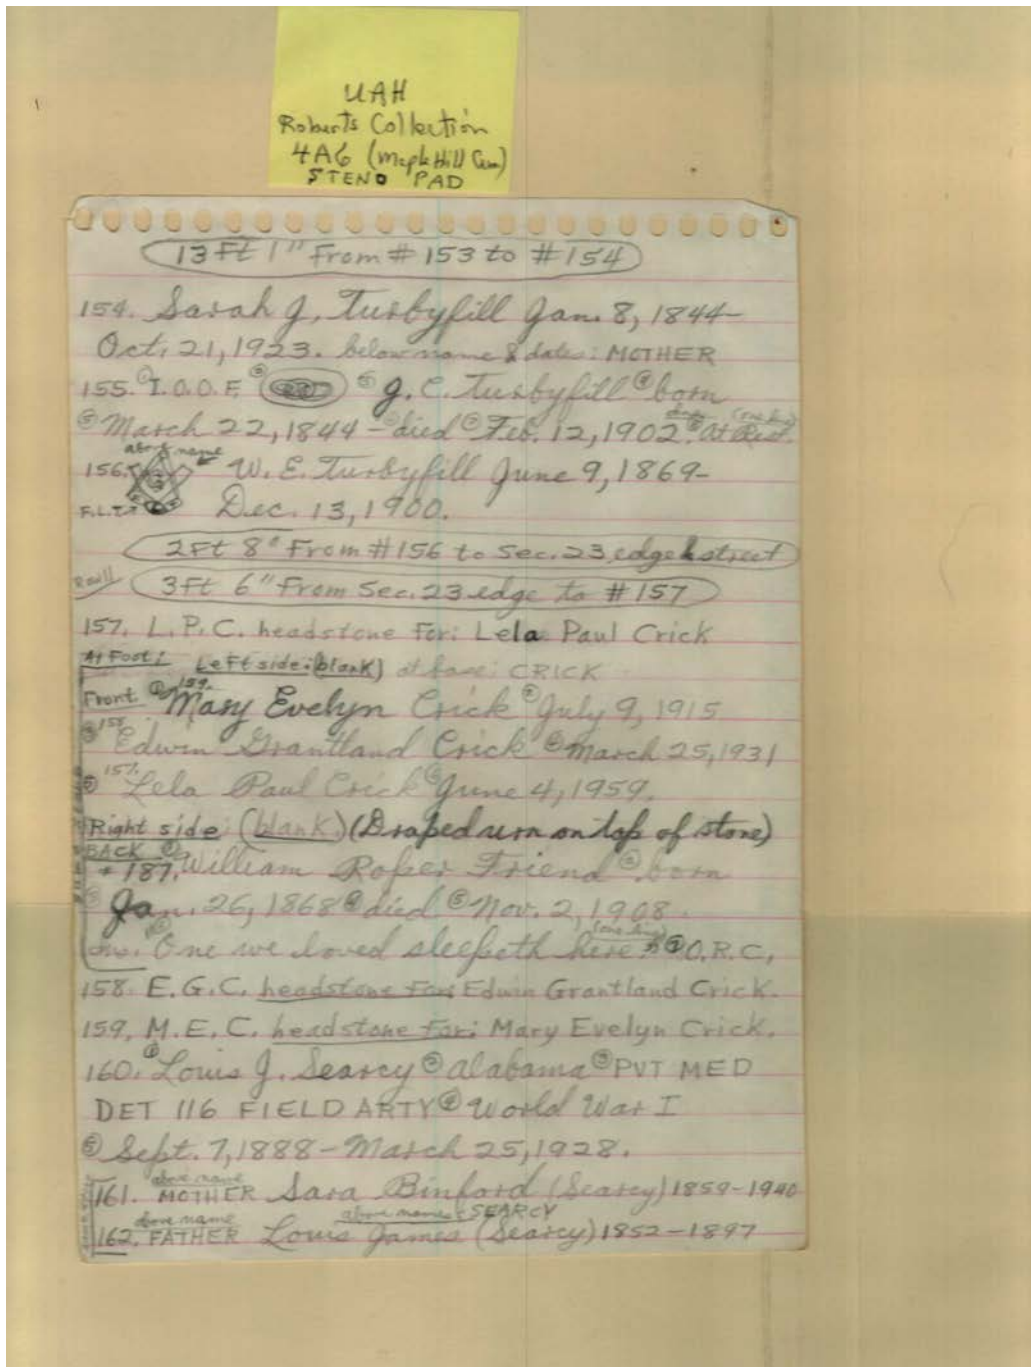 UAH
Roberts Collection
4A6 (Maple Hill Cem)
STENO PAD
13 Ft 1" From # 153 to # 154
154. Sarah J. Turbyfill Jan. 8, 1844–
Oct. 21, 1923. below name & dates: MOTHER
155. ① I.O.O.F. ② ③ J. C. Turbyfill ④ born
⑤ March 22, 1844 – ⑥ died ⑦ Feb. 12, 1902. ⑧ At Rest. (one line)
above name
156. G W. E. Turbyfill June 9, 1869–
F.L.T. Dec. 13, 1900.
2Ft 8" From #156 to Sec. 23 edge & street
Row 11
3Ft 6" From Sec. 23 edge to # 157
157. L.P.C. headstone For: Lela Paul Crick
At Foot: Left side: (blank) at base: CRICK
Front ① 159. Mary Evelyn Crick ② July 9, 1915
③ 158. Edwin Grantland Crick ④ March 25, 1931
⑤ 157. Lela Paul Crick ⑥ June 4, 1959.
Right side: (blank) (Draped urn on top of stone)
BACK ①
+ 187. William Roper Friend ② born
③ Jan. 26, 1868 ④ died ⑤ Nov. 2, 1908.
ins. ⑥ One we loved sleepeth here. (one line) ⑦ O.R.C.
158. E.G.C. headstone For: Edwin Grantland Crick.
159. M.E.C. headstone For: Mary Evelyn Crick.
160. ① Louis J. Searcy ② Alabama ③ PVT MED
DET 116 FIELD ARTY ④ World War I
⑤ Sept. 7, 1888 – March 25, 1928.
above name
161. MOTHER Sara Binford (Searcy) 1859–1940
above name above names: SEARCY
162. FATHER Louis James (Searcy) 1852–1897